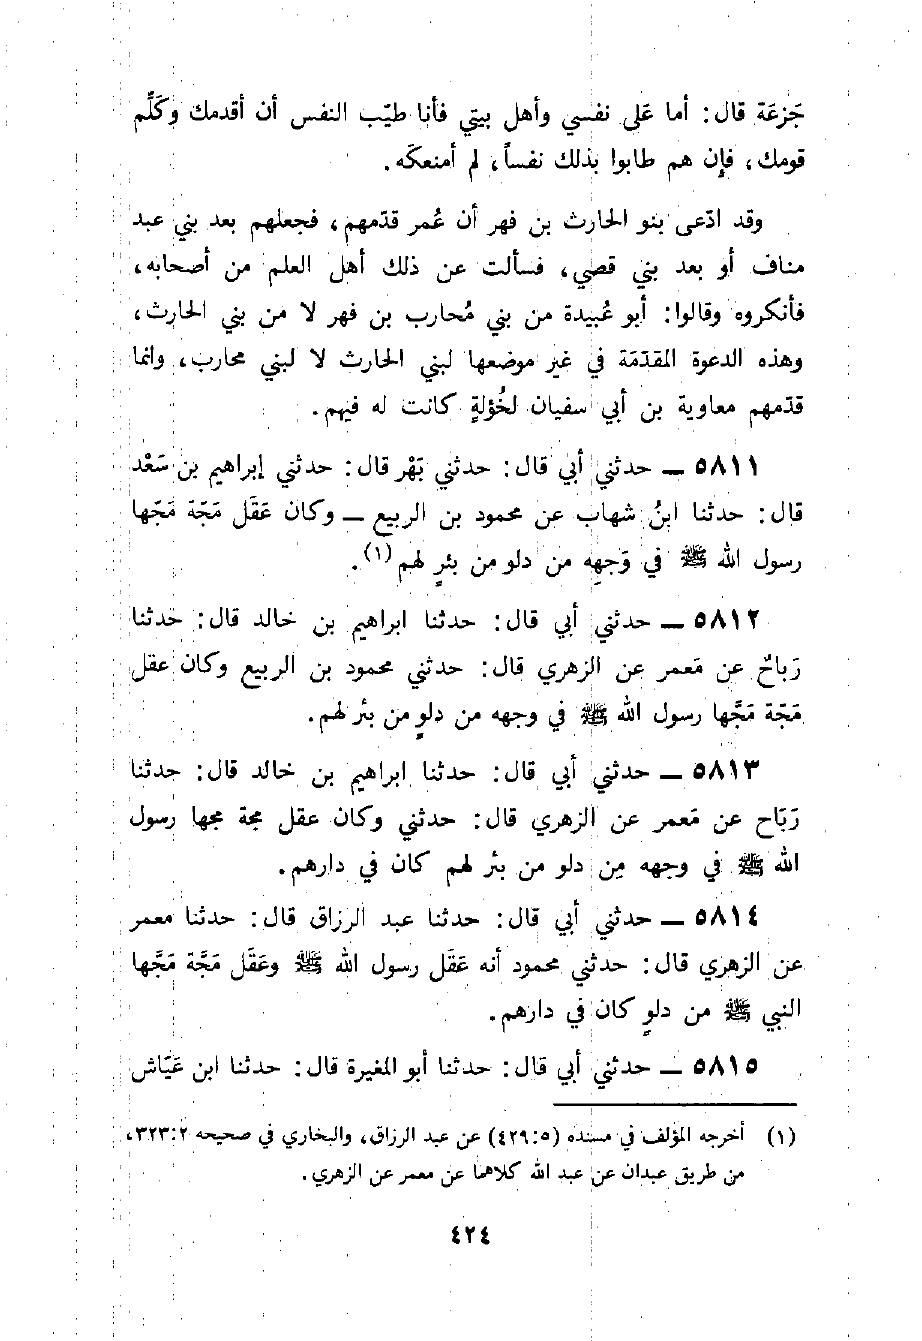 جَزعَة قال: أما عَلى نفسي وأهل بيتي فأنا طيّب النفس أن أقدمك وكَلِّم
قومك، فإن هم طابوا بذلك نفساً، لم أمنعكَه.
وقد ادّعى بنو الحارث بن فهر أن عُمر قدّمهم، فجعلهم بعد بني عبد
مناف أو بعد بني قصي، فسألت عن ذلك أهل العلم من أصحابه،
فأنكروه وقالوا: أبو عُبيدة من بني مُحارب بن فهر لا من بني الحارث،
وهذه الدعوة المقدّمَة في غير موضعها لبني الحارث لا لبني محارب، وانما
قدّمهم معاوية بن أبي سفيان لخُؤلةٍ كانت له فيهم.
٥٨١١ ــ حدثني أبي قال: حدثني بَهْر قال: حدثني إبراهيم بن سَعْد
قال: حدثنا ابنُ شهاب عن محمود بن الربيع ــ وكان عَقَل مَجّة مَجّها
رسول الله ﷺ في وَجهِه من دلو من بئرٍ لهم (١).
٥٨١٢ ــ حدثني أبي قال: حدثنا ابراهيم بن خالد قال: حدثنا
رَباحٌ عن مَعمر عن الزهري قال: حدثني محمود بن الربيع وكان عقل
مَجّة مَجَّها رسول الله ﷺ في وجهه من دلوٍ من بئر لهم.
٥٨١٣ ــ حدثني أبي قال: حدثنا ابراهيم بن خالد قال: حدثنا
رَبَاح عن مَعمر عن الزهري قال: حدثني وكان عقل مجة مجها رسول
الله ﷺ في وجهه مِن دلو من بئر لهم كان في دارهم.
٥٨١٤ ــ حدثني أبي قال: حدثنا عبد الرزاق قال: حدثنا معمر
عن الزهري قال: حدثني محمود أنه عَقَل رسول الله ﷺ وعَقَل مَجَّة مَجَّها
النبي ﷺ من دلوٍ كان في دارهم.
٥٨١٥ ــ حدثني أبي قال: حدثنا أبو المغيرة قال: حدثنا ابن عَيَّاش
(١) أخرجه المؤلف في مسنده (٤٢٩:٥) عن عبد الرزاق، والبخاري في صحيحه ٣٢٣:٢،
من طريق عبدان عن عبد الله كلاهما عن معمر عن الزهري.
٤٢٤